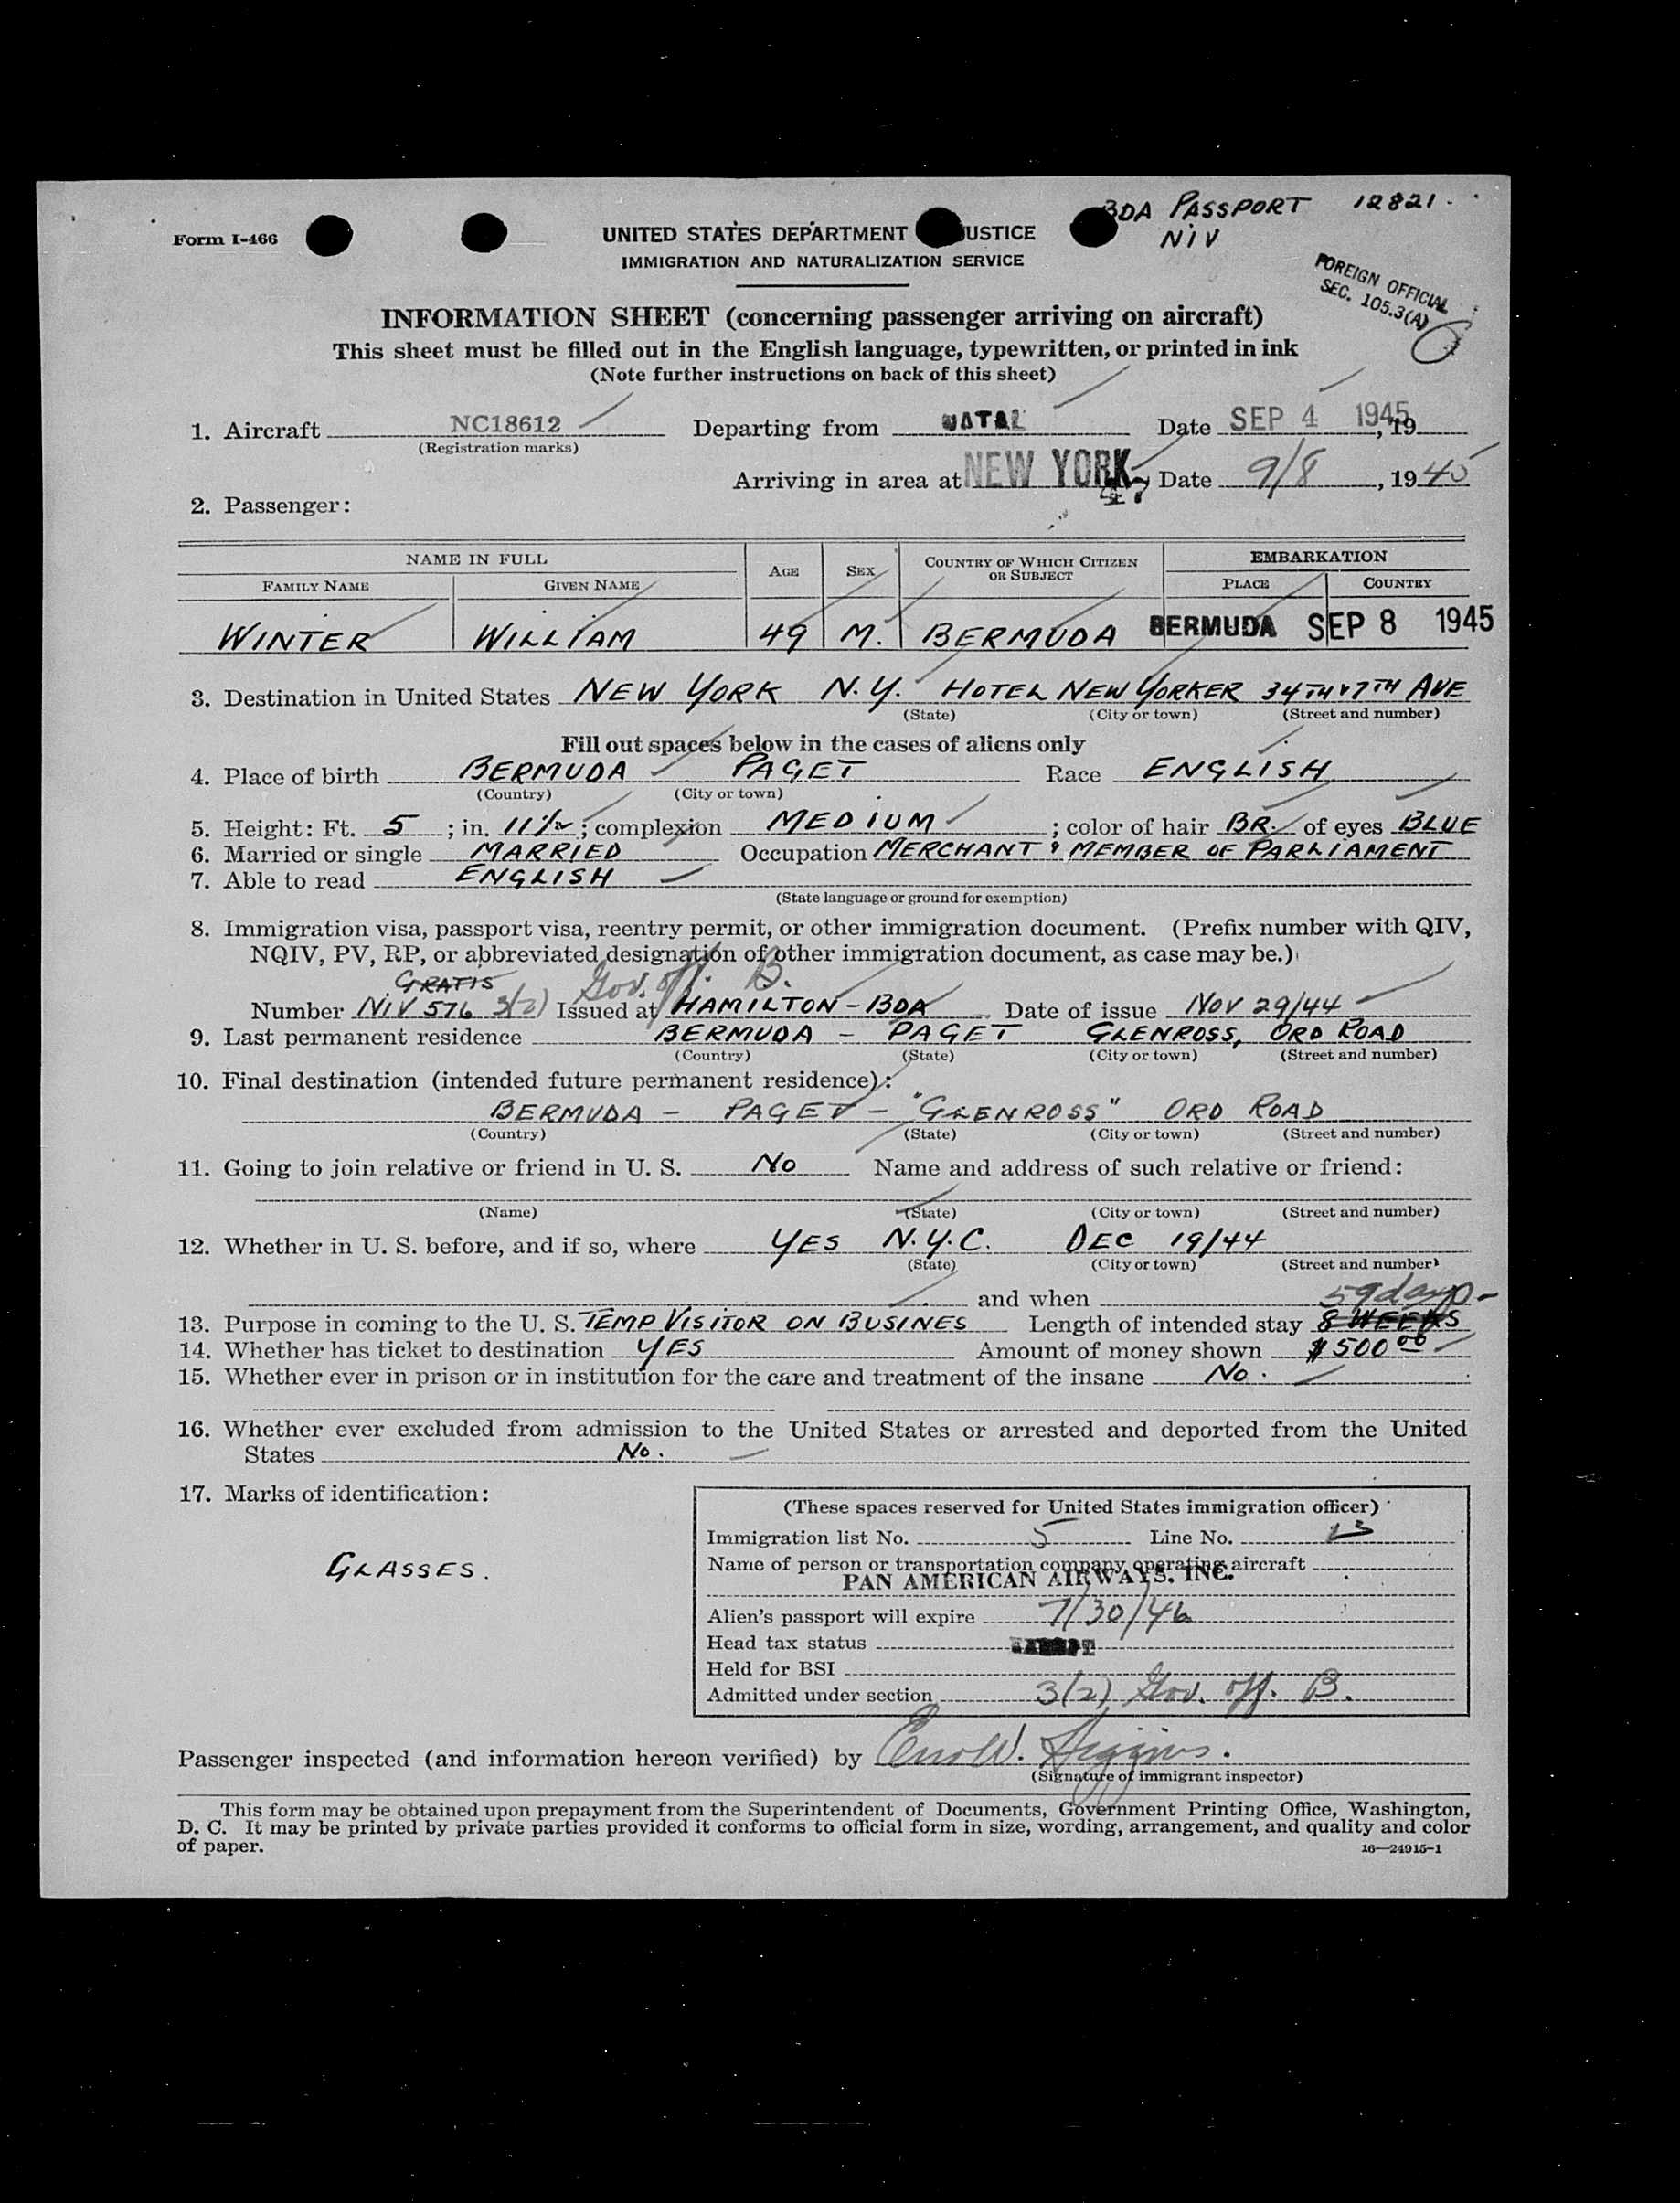 BDA PASSPORT 12821.
Form I-466
UNITED STATES DEPARTMENT USTICE
NIV
IMMIGRATION AND NATURALIZATION SERVICE
FOREIGN OFFICIAL
SEC. 105.3(A)
INFORMATION SHEET (concerning passenger arriving on aircraft)
This sheet must be filled out in the English language, typewritten, or printed in ink
(Note further instructions on back of this sheet)
1. Aircraft NC18612 Departing from NATAL Date SEP 4 1945, 19
(Registration marks)
Arriving in area at NEW YORK 47 Date 9/8, 1945
2. Passenger:
NAME IN FULL AGE SEX COUNTRY OF WHICH CITIZEN OR SUBJECT EMBARKATION
FAMILY NAME GIVEN NAME PLACE COUNTRY
WINTER WILLIAM 49 M. BERMUDA BERMUDA SEP 8 1945
3. Destination in United States NEW YORK N.Y. HOTEL NEW YORKER 34TH & 7TH AVE
(State) (City or town) (Street and number)
Fill out spaces below in the cases of aliens only
4. Place of birth BERMUDA PAGET Race ENGLISH
(Country) (City or town)
5. Height: Ft. 5; in. 11½; complexion MEDIUM; color of hair BR. of eyes BLUE
6. Married or single MARRIED Occupation MERCHANT & MEMBER OF PARLIAMENT
7. Able to read ENGLISH
(State language or ground for exemption)
8. Immigration visa, passport visa, reentry permit, or other immigration document. (Prefix number with QIV,
NQIV, PV, RP, or abbreviated designation of other immigration document, as case may be.)
GRATIS Gov. off. B.
Number NIV 576 3(2) Issued at HAMILTON - BDA Date of issue NOV 29/44
9. Last permanent residence BERMUDA - PAGET GLENROSS, ORD ROAD
(Country) (State) (City or town) (Street and number)
10. Final destination (intended future permanent residence):
BERMUDA - PAGET - "GLENROSS" ORD ROAD
(Country) (State) (City or town) (Street and number)
11. Going to join relative or friend in U. S. No Name and address of such relative or friend:
(Name) (State) (City or town) (Street and number)
12. Whether in U. S. before, and if so, where YES N.Y.C. DEC 19/44
(State) (City or town) (Street and number)
and when 59 days -
13. Purpose in coming to the U. S. TEMP VISITOR ON BUSINES Length of intended stay 8 WEEKS
14. Whether has ticket to destination YES Amount of money shown $500 00
15. Whether ever in prison or in institution for the care and treatment of the insane No.
16. Whether ever excluded from admission to the United States or arrested and deported from the United
States No.
17. Marks of identification:
GLASSES.
(These spaces reserved for United States immigration officer)
Immigration list No. 5 Line No. 13
Name of person or transportation company operating aircraft
PAN AMERICAN AIRWAYS. INC.
Alien's passport will expire 7/30/46
Head tax status
Held for BSI
Admitted under section 3(2) Gov. off. B.
Passenger inspected (and information hereon verified) by W. Higgins.
(Signature of immigrant inspector)
This form may be obtained upon prepayment from the Superintendent of Documents, Government Printing Office, Washington,
D. C. It may be printed by private parties provided it conforms to official form in size, wording, arrangement, and quality and color
of paper. 16—24915-1